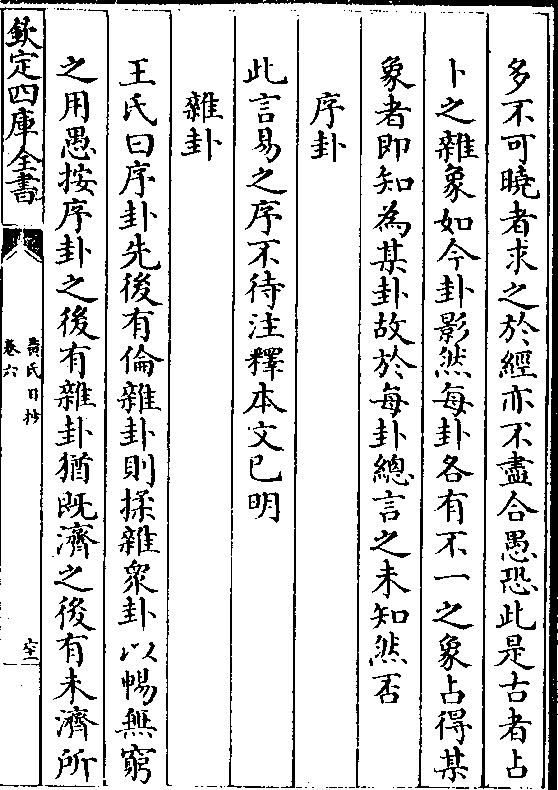 多不可曉者求之於經亦不盡合愚恐此是古者占
卜之雜象如今卦影然每卦各有不一之象占得某
象者即知為某卦故於每卦總言之未知然否
序卦
此言易之序不待注釋本文已明
雜卦
王氏曰序卦先後有倫雜卦則揉雜衆卦以暢無窮
之用愚按序卦之後有雜卦猶既濟之後有未濟所
欽定四庫全書
黃氏日抄
卷六